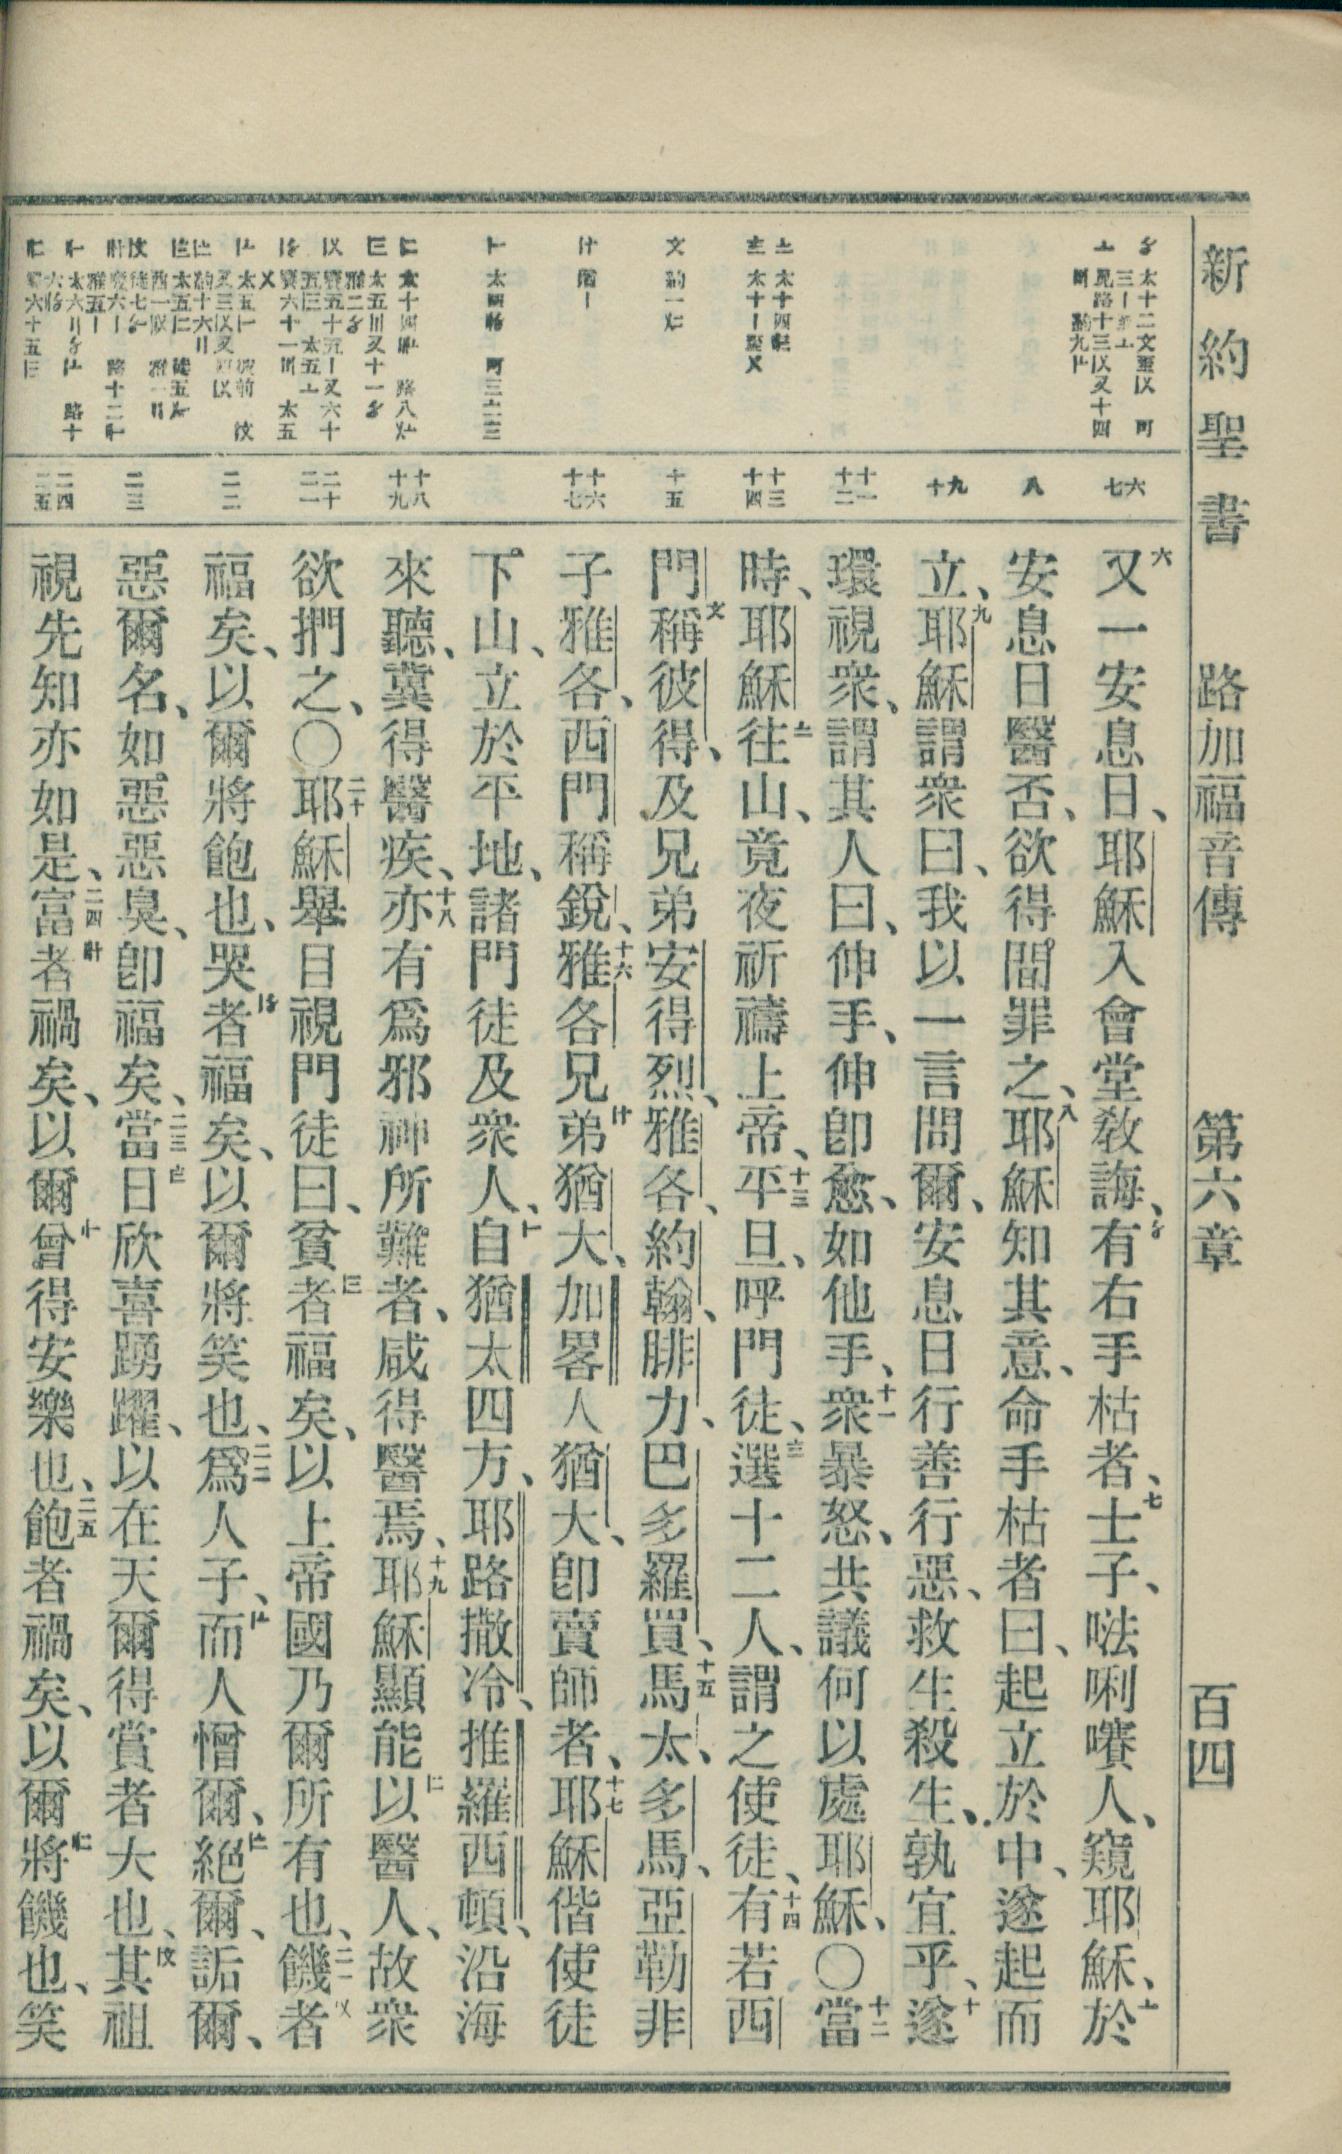 新約聖書 路加福音傳 第六章 百四
六七
八
九十
十一十二
十三十四
十五
十六十七
十八十九
二十二一
二二
二三
二四二五
六又一安息日、耶穌入會堂敎誨、有右手枯者、七士子、𠵽唎㘔人、窺耶穌、於
安息日醫否、欲得間罪之、八耶穌知其意、命手枯者曰、起立於中、遂起而
立、九耶穌謂衆曰、我以一言問爾、安息日行善行惡、救生殺生、孰宜乎、十遂
環視衆、謂其人曰、伸手、伸卽愈、如他手、十一衆暴怒、共議何以處耶穌、〇十二當
時、耶穌往山、竟夜祈禱上帝、十三平旦、呼門徒、選十二人、謂之使徒、十四有若西
門稱彼得、及兄弟安得烈、雅各、約翰、腓力、巴多羅買、十五馬太、多馬、亞勒非
子雅各、西門稱銳、十六雅各兄弟猶大、加畧人猶大、卽賣師者、十七耶穌偕使徒
下山、立於平地、諸門徒及衆人、自猶太四方、耶路撒冷、推羅西頓、沿海
來聽、冀得醫疾、十八亦有爲邪神所難者、咸得醫焉、十九耶穌顯能以醫人、故衆
欲捫之、〇二十耶穌舉目視門徒曰、貧者福矣、以上帝國乃爾所有也、二一饑者
福矣、以爾將飽也、哭者福矣、以爾將笑也、二二爲人子、而人憎爾、絕爾、詬爾、
惡爾名、如惡惡臭、卽福矣、二三當日欣喜踴躍、以在天爾得賞者大也、其祖
視先知亦如是、二四富者禍矣、以爾曾得安樂也、二五飽者禍矣、以爾將饑也、笑